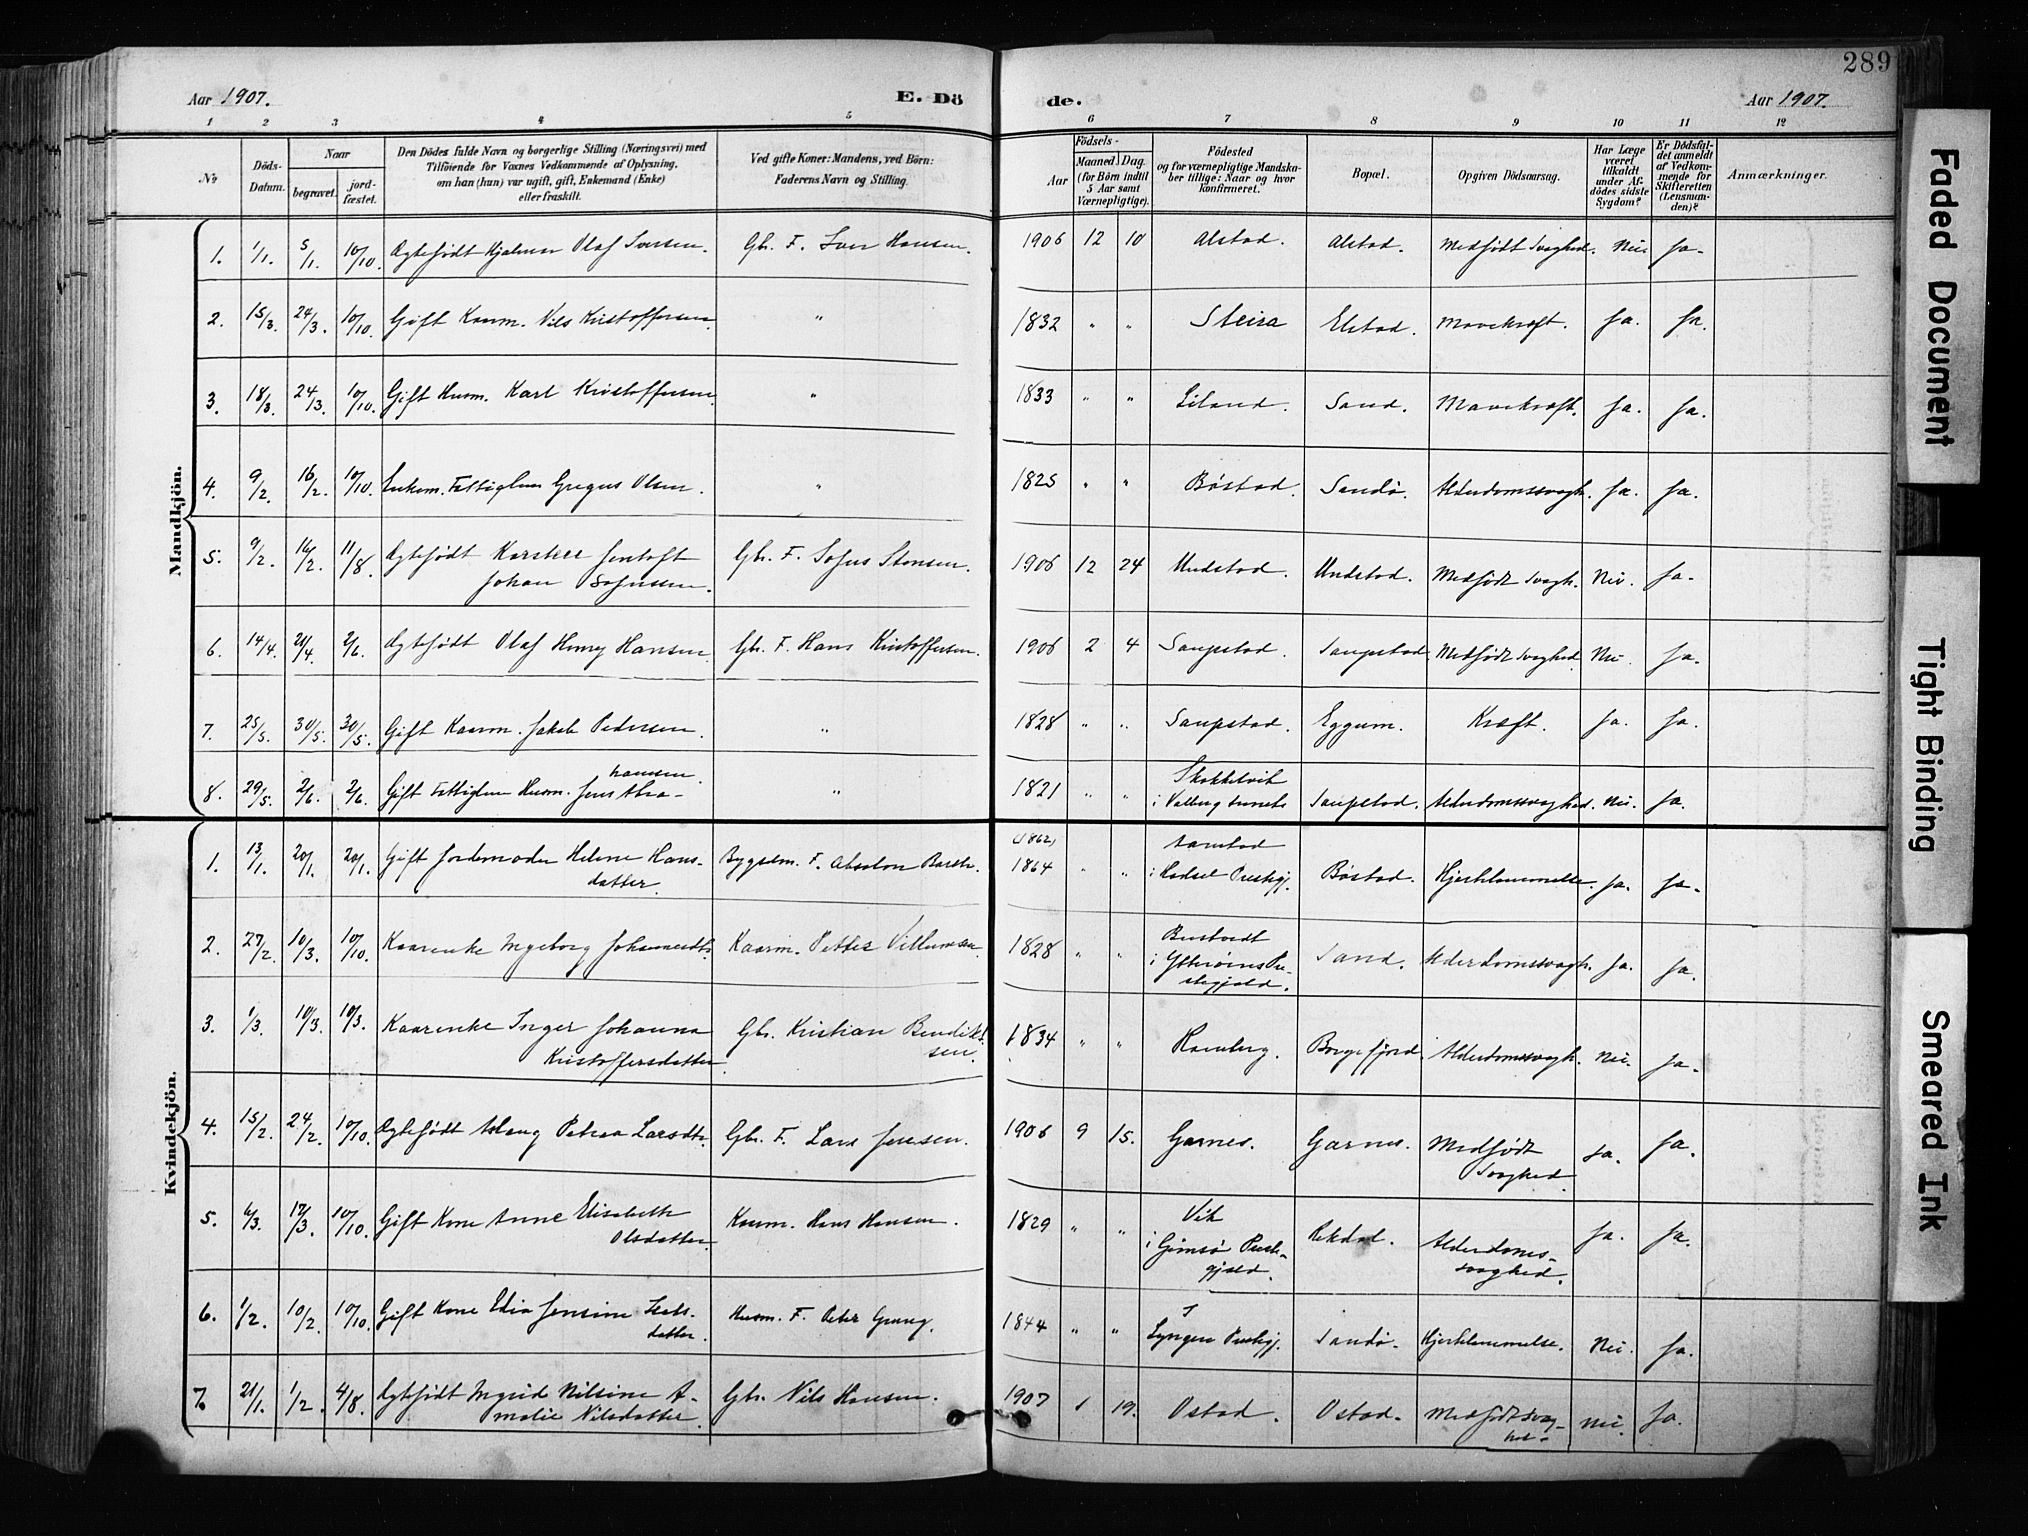 289
Aar 1907.
E. Dö
de.
Aar 1907.
1 2 3 4 5 6 7 8 9 10 11 12
No
Döds-Datum.
Naar
begravet.
jord-fæstet.
Den Dödes fulde Navn og borgerlige Stilling (Næringsvei) med
Tilföiende for Voxnes Vedkommende af Oplysning,
om han (hun) var ugift, gift, Enkemand (Enke)
eller fraskilt.
Ved gifte Koner: Mandens, ved Börn:
Faderens Navn og Stilling.
Födsels-
Aar
Maaned Dag.
(for Börn indtil
5 Aar samt
Værnepligtige).
Födested
og for værnepligtige Mandska-
ber tillige: Naar og hvor
konfirmeret.
Bopæl.
Opgiven Dödsaarsag.
Har Læge
været
tilkaldt
under Af-
dödes sidste
Sygdom?
Er Dödsfal-
det anmeldt
af Vedkom-
mende for
Skifteretten
(Lensman-
den)?
Anmærkninger.
Mandkjön.
1. 1/1. 5/1. 10/10. Ægtefødt Hjalmar Olaf Iversen. Gbr. F. Iver Hansen. 1906 12 10 Alstad. Alstad. Medfødt Svaghed. Nei. Ja.
2. 15/3. 24/3. 10/10. Gift Kaarm. Nils Kristoffersen. " 1832 " " Steira Elstad. Mavekræft. Ja. Ja.
3. 18/3. 24/3. 10/10. Gift Husm. Karl Kristoffersen. " 1833 " " Liland. Sand. Mavekræft. Ja. Ja.
4. 9/2. 16/2. 10/10. Enkem. Fattiglem Gregus Olsen. " 1825 " " Bøstad. Sandø. Alderdomssvagh. Ja. Ja.
5. 9/2. 16/2. 11/8. Ægtefødt Karsten Jentoft
Johan Sofussen. Gbr. F. Sofus Stensen. 1906 12 24 Undstad. Undstad. Medfødt Svagh. Nei. Ja.
6. 14/4. 21/4. 2/6. Ægtefødt Olaf Henry Hansen. Gbr. F. Hans Kristoffersen. 1906 2 4 Saupstad. Saupstad Medfødt Svaghed Nei. Ja.
7. 25/5. 30/5. 30/5. Gift Kaarm. Jakob Pedersen. " 1828 " " Saupstad. Eggum. Kræft. Ja. Ja.
8. 29/5. 2/6. 2/6. Gift Fattiglem Husm. Jens
hamsen. " 1821 " "
i Valberg Saupstad. Alderdomssvaghed. Nei. Ja.
Kvindekjön.
1. 13/1. 20/1. 20/1. Gift Jordemoder Helene Hans-
datter. Bygselm. F. Absalon (1862)
1864 " "
i Hadsel Prestgj. Bøstad. Hjerklammelse. Ja. Ja.
2. 27/2. 10/3. 10/10. Kaarenke Ingeborg Johannesdtr. Kaarm. Petter Villumsen. 1828 " "
i
stegjæld. Sand. Alderdomssvagh. Ja. Ja.
3. 1/3. 10/3. 10/3. Kaarenke Inger Johanna
Kristoffersdatter Gbr. Kristian Bendikt-
sen. 1834 " " Hamberg. Borgefjord. Alderdomssvagh. Nei. Ja.
4. 15/2. 24/2. 10/10. Ægtefødt Aslaug Petrea Larsdtr. Gbr. F. Lars Jensen. 1906 9 15. Garnes. Garnes. Medfødt
Svaghed. Ja. Ja.
5. 6/3. 17/3. 10/10. Gift Kone Anne Elisabeth
Olsdatter. Kaarm. Hans Hansen. 1829 " " Vik
i Gimsø Prest-
gjæld. Rekdal. Alderdoms-
svaghed. Ja. Ja.
6. 1/2. 10/2. 10/10. Gift Kone Jensine
datter. Husm. F. Peter 1844 " " I
Lyngen Prestgj. Sandø. Hjerteklammelse. Nei. Ja.
7. 21/1. 1/2. 4/8. Ægtefødt Ingrid Nilsine A-
malie Nilsdatter. Gbr. Nils Hansen. 1907 1 19. Ostad. Ostad. Medfødt Svag-
hed. Nei. Ja.
Faded Document
Tight Binding
Smeared Ink